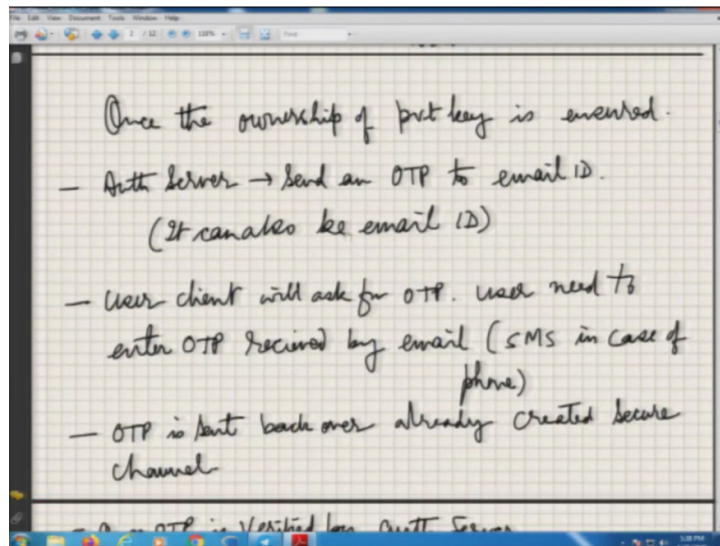 File Edit View Document Tools Window Help
2 / 12 118% Find
Once the ownership of pvt key is ensured.
— Auth Server → Send an OTP to email ID.
(It can also be email ID)
— User client will ask for OTP. User need to
enter OTP recieved by email (SMS in case of
phone)
— OTP is sent back over already created secure
channel
OTP is Verified by Auth Server
5:08 PM